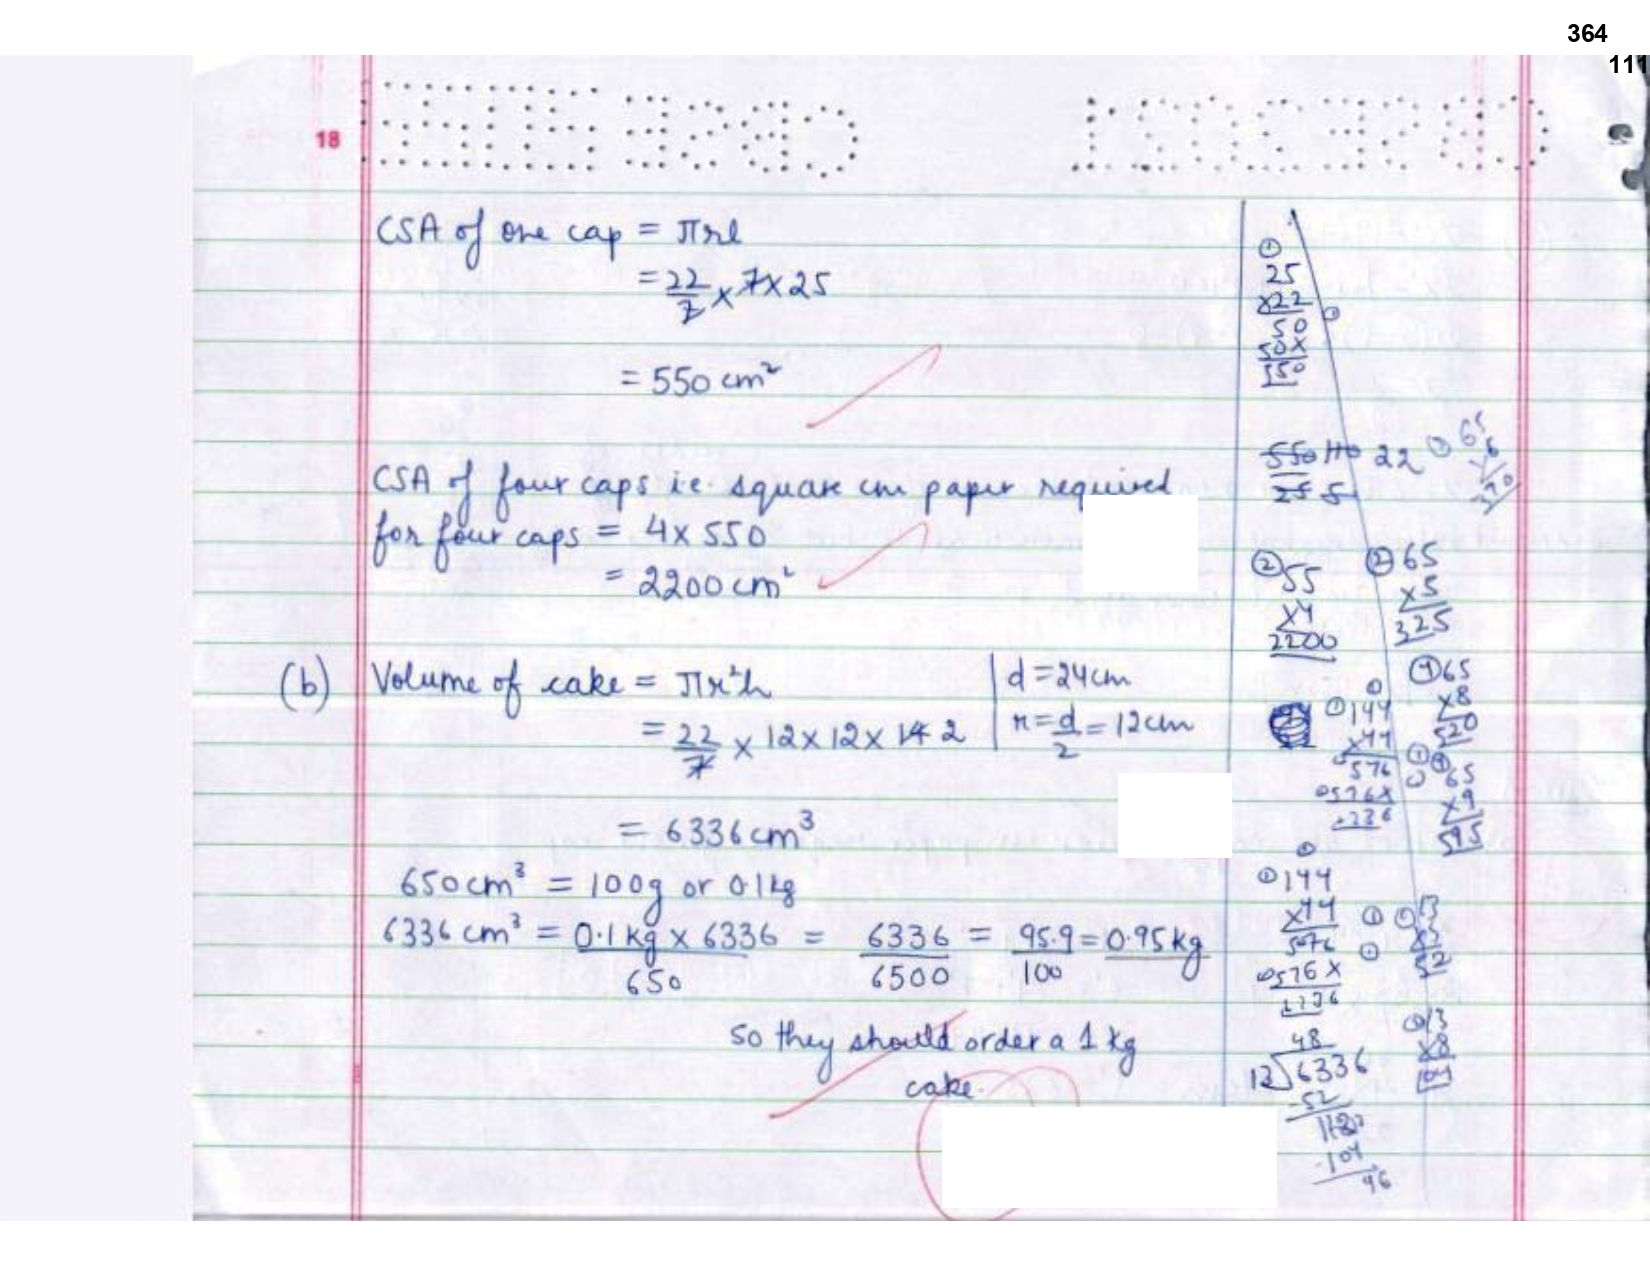 364
111
18
CSA of one cap = πrl
= 22/7 × 7 × 25
= 550 cm²
CSA of four caps i.e. square cm paper required
for four caps = 4 × 550
= 2200 cm²
(b) Volume of cake = πr²h
= 22/7 × 12 × 12 × 14 2
d = 24 cm
r = d/2 = 12 cm
= 6336 cm³
650 cm³ = 100g or 0.1 kg
6336 cm³ = 0.1 kg × 6336/650 = 6336/6500 = 95.9/100 = 0.95 kg
So they should order a 1 kg
cake.
25
×22
50
50×
550
550 110 22
25 5
55
×4
2200
65
×5
325
65
×8
520
144
×44
576
576×
65
×9
595
144
×44
576×
48
13 6336
52
104
13
×8